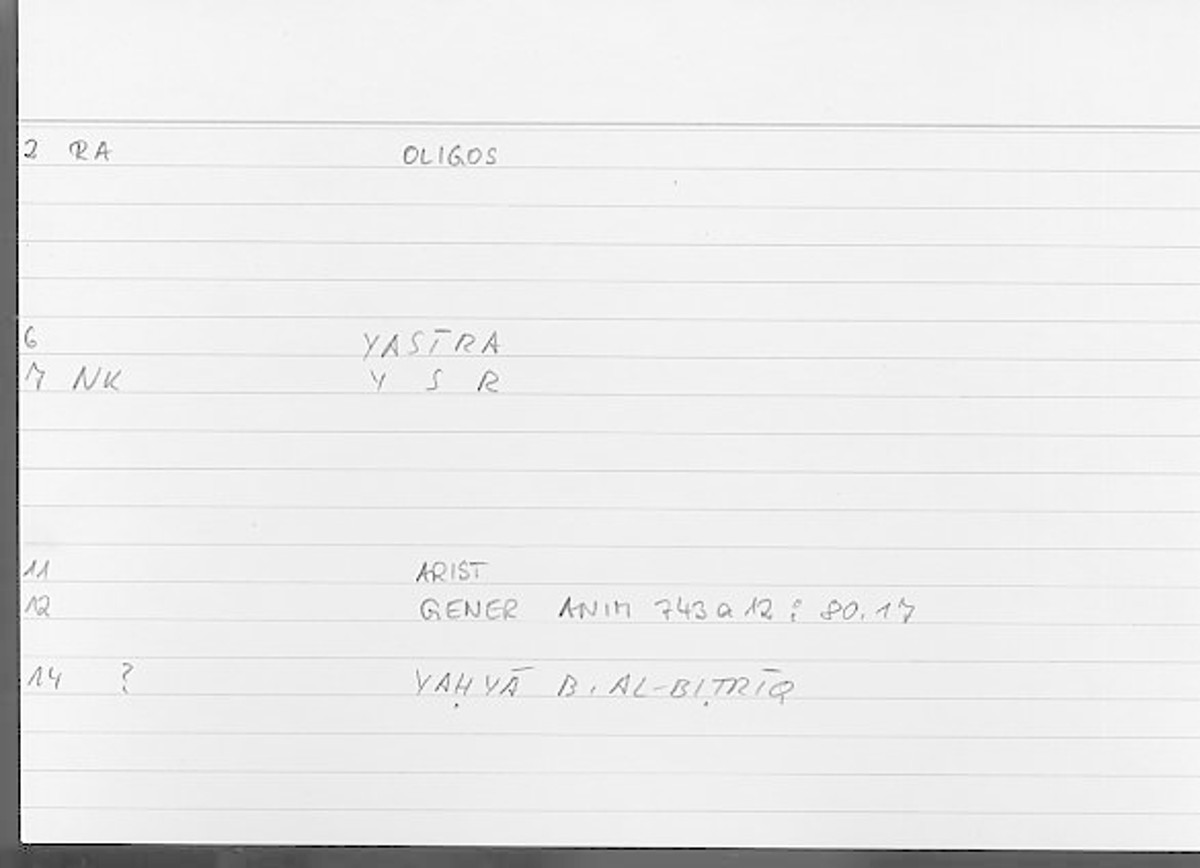 2 RA OLIGOS
6 YASĪRA
7 NK Y S R
11 ARIST
12 GENER ANIM 743 a 12 : 80.17
14 ? YAḤYĀ B. AL-BIṬRĪQ